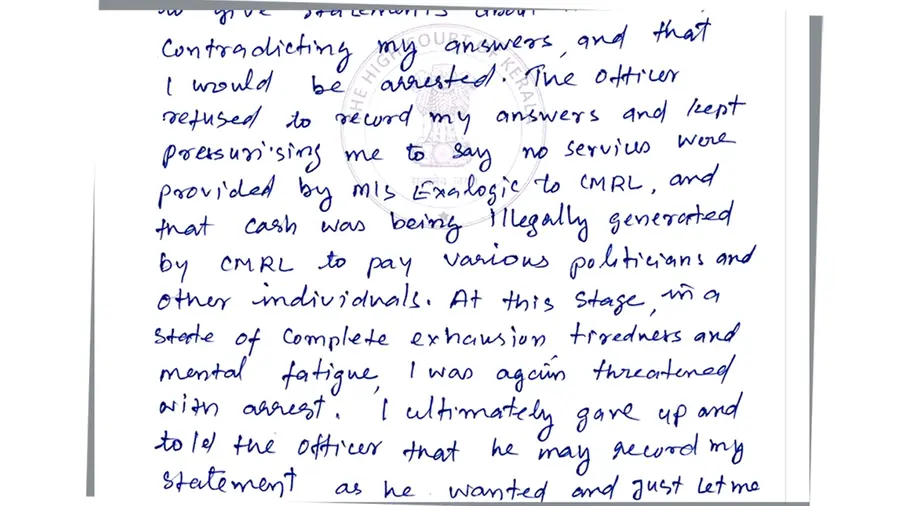 to give statements about
contradicting my answers, and that
I would be arrested. The officer
refused to record my answers and kept
pressurising me to say no services were
provided by M/s Exalogic to CMRL, and
that cash was being illegally generated
by CMRL to pay various politicians and
other individuals. At this stage, in a
state of complete exhausion, tiredness and
mental fatigue, I was again threatened
with arrest. I ultimately gave up and
told the officer that he may record my
statement as he wanted and just let me
THE HIGH COURT OF KERALA